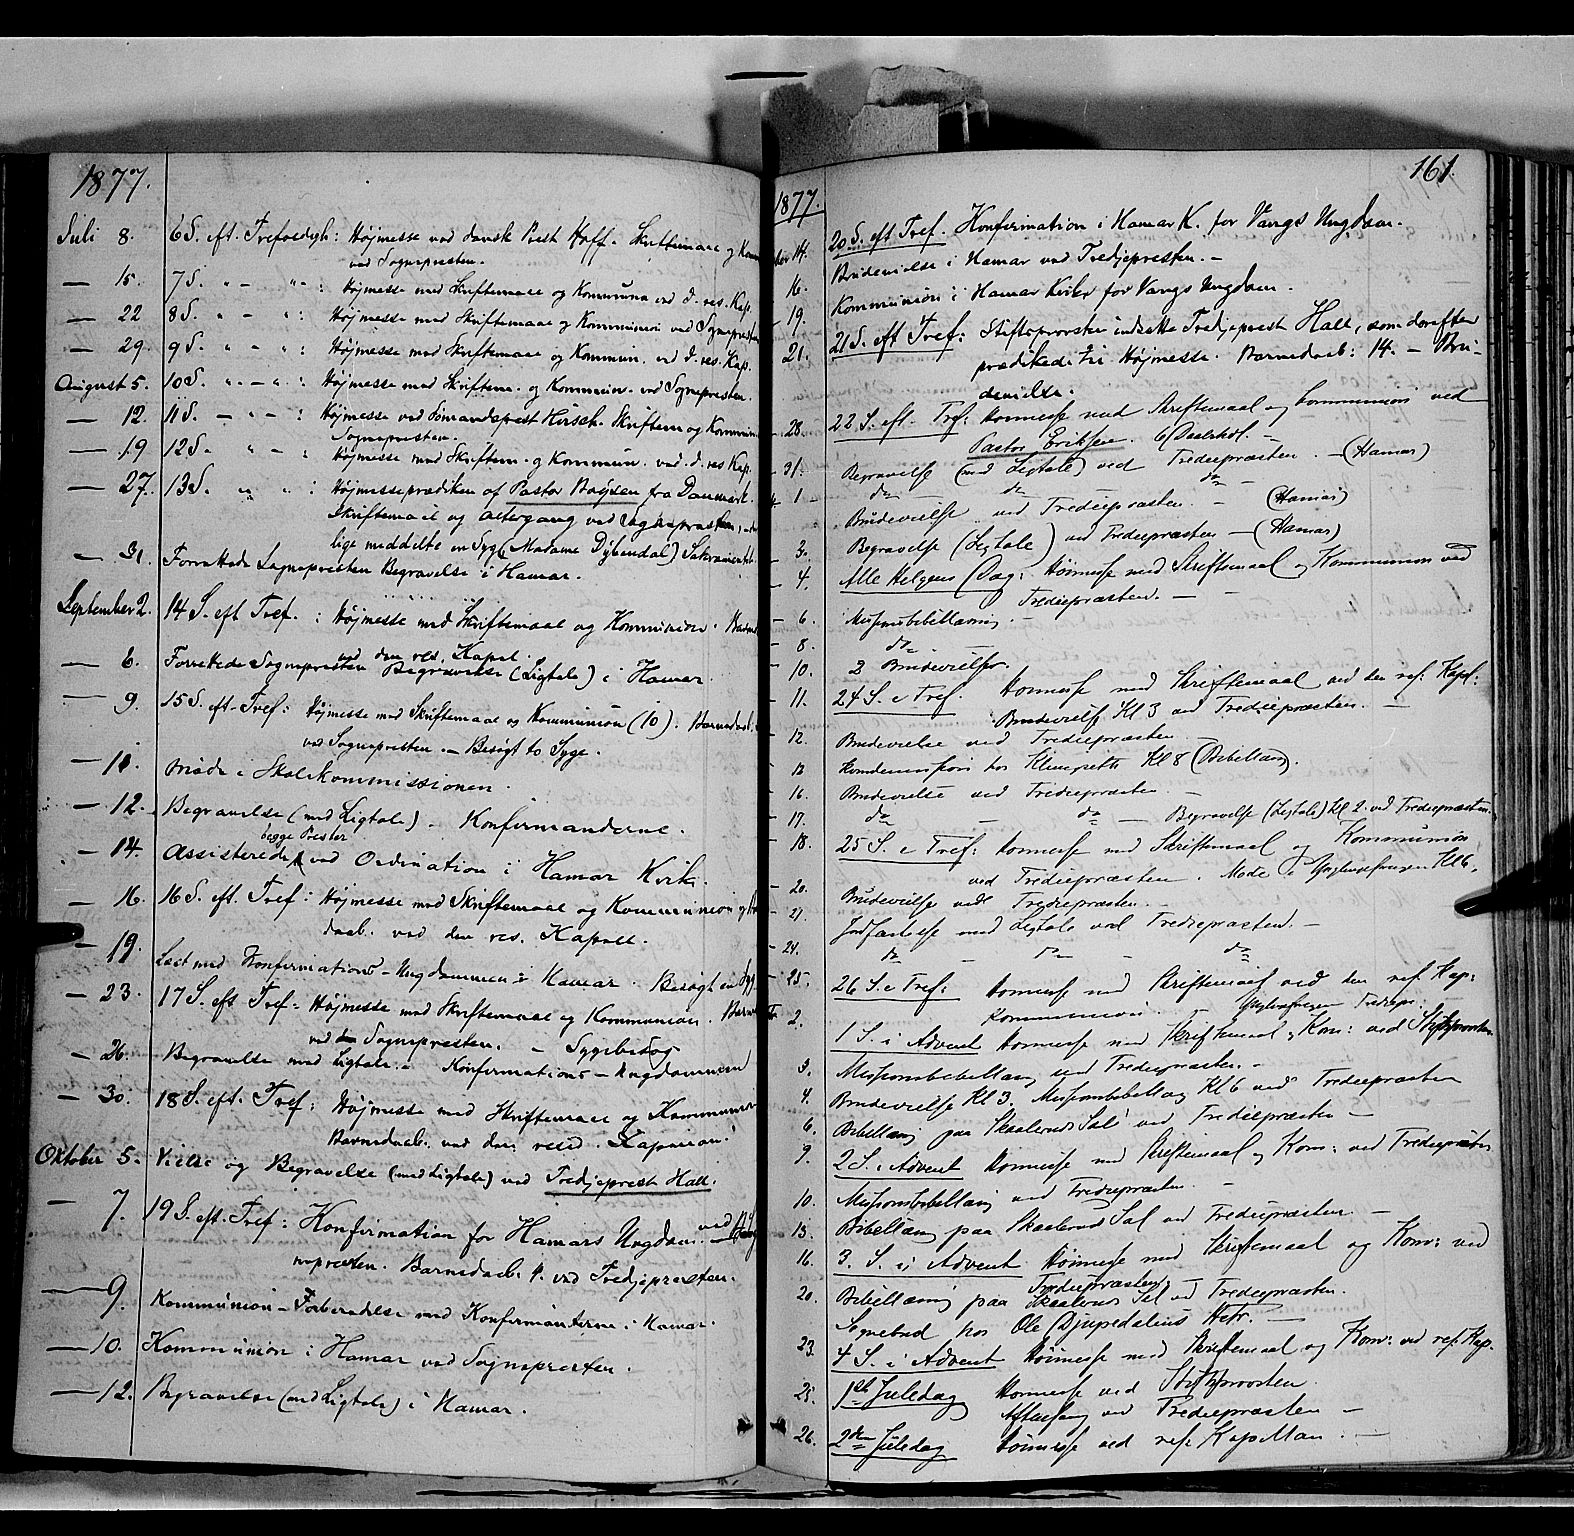 1877.
Juli 8. 6 S. eft. Trefoldigh: Højmesse ved dansk Prest Hoff. Skriftemaal og Kom
ved Sognepresten.
— 15. 7 S. " - " - : Højmesse med Skriftemaal og Kommunion ved d. res. Kap.
— 22 8 S. " - " : Højmesse med Skriftemaal og Kommunion ved Sognepresten
— 29. 9 S. " - " : Højmesse med Skriftemaal og Kommun. ved d. res. Kap.
August 5. 10 S. " - " : Højmesse med Skriftem. og Kommun. ved Sognepresten.
— 12. 11 S. - " - : Højmesse ved Sømandsprest Hirsch. Skriftem og Kommun.
Sognepresten.
— 19 12 S. " - : Højmesse med Skriftem. og Kommun. ved d. res Kap.
— 27. 13 S. " " : Højmesseprædiken af Pastor Boysen fra Danmark.
Skriftemaal og Altergang ved Sognepresten,
lige meddelte en Syg (Madame Dybendal) Sakramentet.
— 31. Forrettede Sognepresten Begravelse i Hamar.
September 2. 14 S. eft Tref. : Højmesse med Skriftemaal og Kommunion. Barned
ved den res. Kapel.
— 6. Forrettede Sognepresten Begravelse (Ligtale) i Hamar.
— 9. 15 S. eft. Tref: Højmesse med Skriftemaal og Kommunion (10). Barnedaab.
ved Sognepresten. — Besøgt to Syge.
— 11. Møde i Skolekommissionen.
— 12. Begravelse (med Ligtale) — Konfirmanderne.
begge Prester
— 14. Assisterede ved Ordination i Hamar Kirke.
— 16. 16 S. eft. Tref: Højmesse med Skriftemaal og Kommunion og Bar
daab. ved den res. Kapell.
— 19. Læst med Konfirmations-Ungdommen i Hamar. Besøgt en Syg.
— 23. 17 S. eft Tref. Højmesse med Skriftemaal og Kommunion. Barne
ved Sognepresten. — Sygebesøg
— 26. Begravelse med Ligtale. — Konfirmations-Ungdommen
— 30. 18 S. eft. Tref: Højmesse med Skriftemaal og Kommunion
Barnedaab. ved den resid. Kapellan.
Oktober 5. Vielse og Begravelse (med Ligtale) ved Tredjeprest Hall.
— 7. 19 S. eft. Tref: Konfirmation for Hamars Ungdom ved Sog
nepresten. Barnedaab. 4. ved Tredjepresten.
— 9. Kommunion-Forberedelse med Konfirmanterne i Hamar.
— 10. Kommunion i Hamar ved Sognepresten.
— 12. Begravelse (med Ligtale) i Hamar.
161.
1877.
14. 20 S. eft Tref. Konfirmation i Hamar K. for Vangs Ungdom.
Brudevielse i Hamar ved Tredjepresten. —
16. Kommunion i Hamar Kirke for Vangs Ungdom.
— 19.
21. 21 S. eft Tref: Stiftsprovsten indsatte Tredjeprest Hall, som derefter
prædikede til Højmesse. Barnedaab: 14. — Bru-
devielse.
— 28. 22 S. eft. Tref: Høimesse med Skriftemaal og Communion ved
Pastor Eriksen. 6 —
— 31. Begravelse (med Ligtale) ved Trediepræsten. — (Hamar)
1 do — do — do —
Brudevielse ved Trediepræsten — (Hamar)
— 3. Begravelse (Ligtale) ved Trediepræsten — (Hamar)
— 4. Alle Helgens Dag: Høimesse med Skriftemaal og Kommunion ved
Trediepræsten. —
— 6. Missionsbibellæsning. —
— 8. do —
— 10. 2 Brudevielser.
— 11. 24 S. e Tref. Høimesse med Skriftemaal ved den res: Kapl:
Brudevielse Kl 3 ved Trediepræsten. —
— 12. Brudevielse ved Trediepræsten —
— 13 hos Kl 8 (Bibellæsn).
— 16. Brudevielse ved Trediepræsten. —
— 17. do — do — Begravelse (Ligtale) Kl 2. ved Trediepræsten.
— 18. 25 S. e Tref: Høimesse med Skriftemaal og Kommunion
ved Trediepræsten. Møde i Kl 6.
— 20. Brudevielse ved Trediepræsten. —
— 21. Jordfæstelse med Ligtale ved Trediepræsten. —
— 24. do — do — do
— 25. 26 S. e Tref: Høimesse med Skriftemaal ved den res. Kap:
Kommunion.
2. 1 S. i Advent Høimesse med Skriftemaal og Kom: ved Stiftsprovsten
3. Missionsbibellæsn ved Trediepræsten. —
4. Brudevielse Kl 3. Missionsbibellæsn Kl 6 ved Trediepræsten
6. Bibellæsn paa Skaalerud Sal ved Tredieprasten —
9. 2 S. i Advent Høimesse med Skriftemaal og Kom: ved Tredieprästen
10. Missionsbibellæsn ved Tredieprästen. —
13. Bibellæsn paa Skaalerud Sal ved Tredieprästen. —
16. 3. S. i Advent Høimesse med Skriftemaal og Kom: ved
Tredieprästen
20. Bibellæsn paa Skaaleruds Sal ved Tredieprästen.
Sognebud hos Ole Djupedalius Hstr. —
23. 4 S. i Advent Høimesse med Skriftemaal og Kom: ved res. Kap.
25. 1st Juledag Høimesse ved Stiftsprovsten.
Aftensang ved Tredieprästen —
26. 2den Juledag Høimesse ved res. Kapellan. —